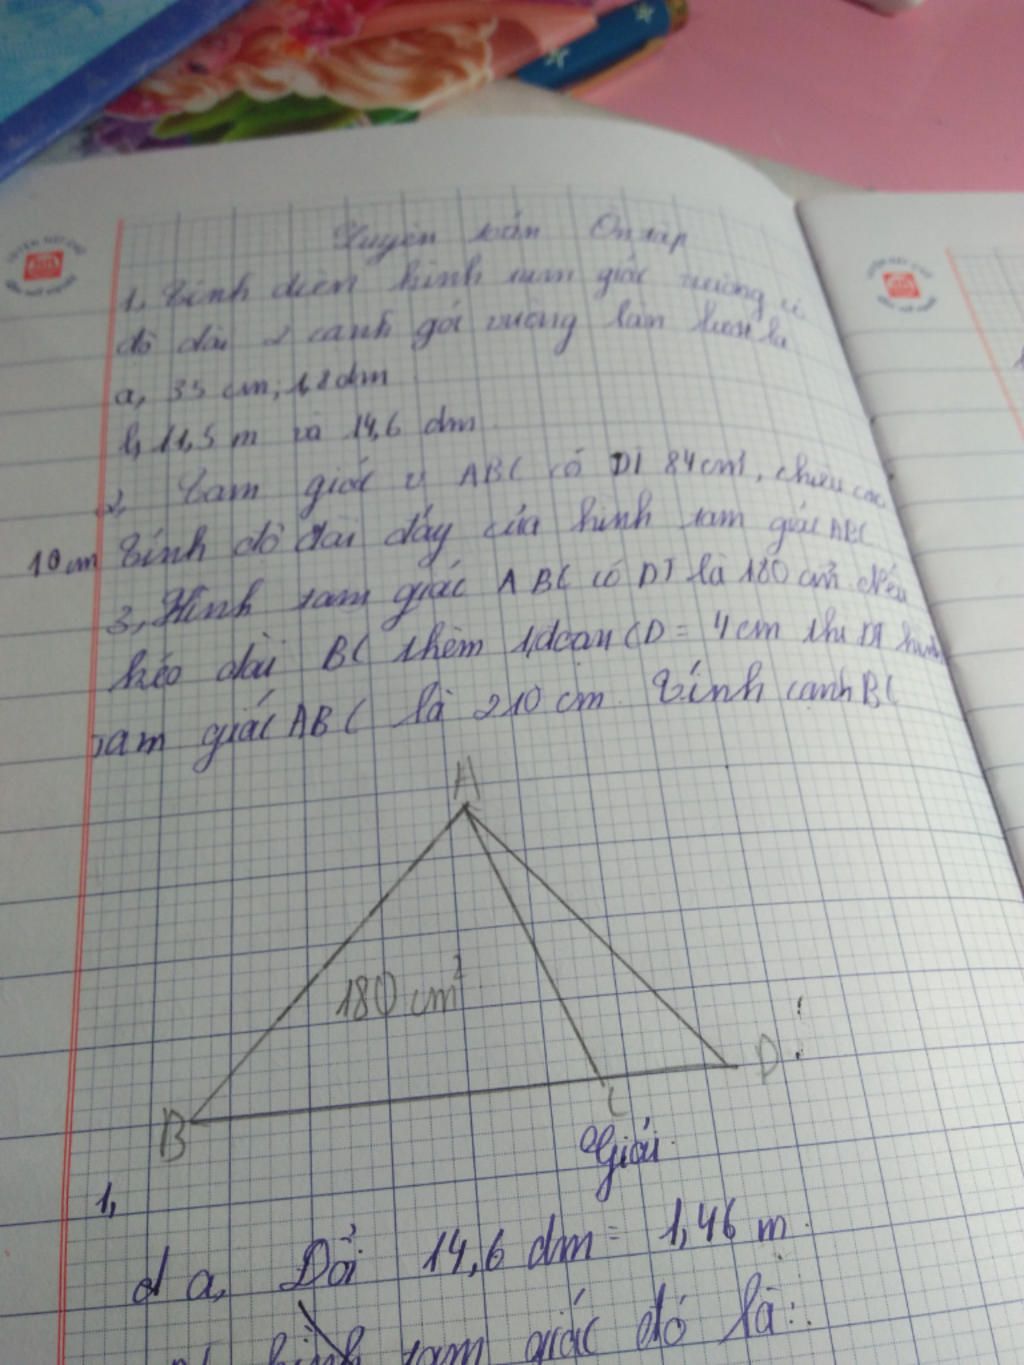 Luyện toán Ôn tập
1, Tính diện hình tam giác vuông có
độ dài 2 cạnh gói vuông lần lượt là
a, 35 cm, 1,8 dm
b, 11,5 m và 14,6 dm
2, Tam giác ABC có DT 84 cm², chiều cao
10 cm Tính độ dài đáy của hình tam giác ABC
3, Hình tam giác ABC có DT là 180 cm². Nếu
kéo dài BC thêm 1 đoạn CD = 4cm thì DT hình
tam giác ABC là 210 cm. Tính cạnh BC
A
180 cm²
B
C
D
Giải
1,
a, Đổi 14,6 dm = 1,46 m
hình tam giác đó là: